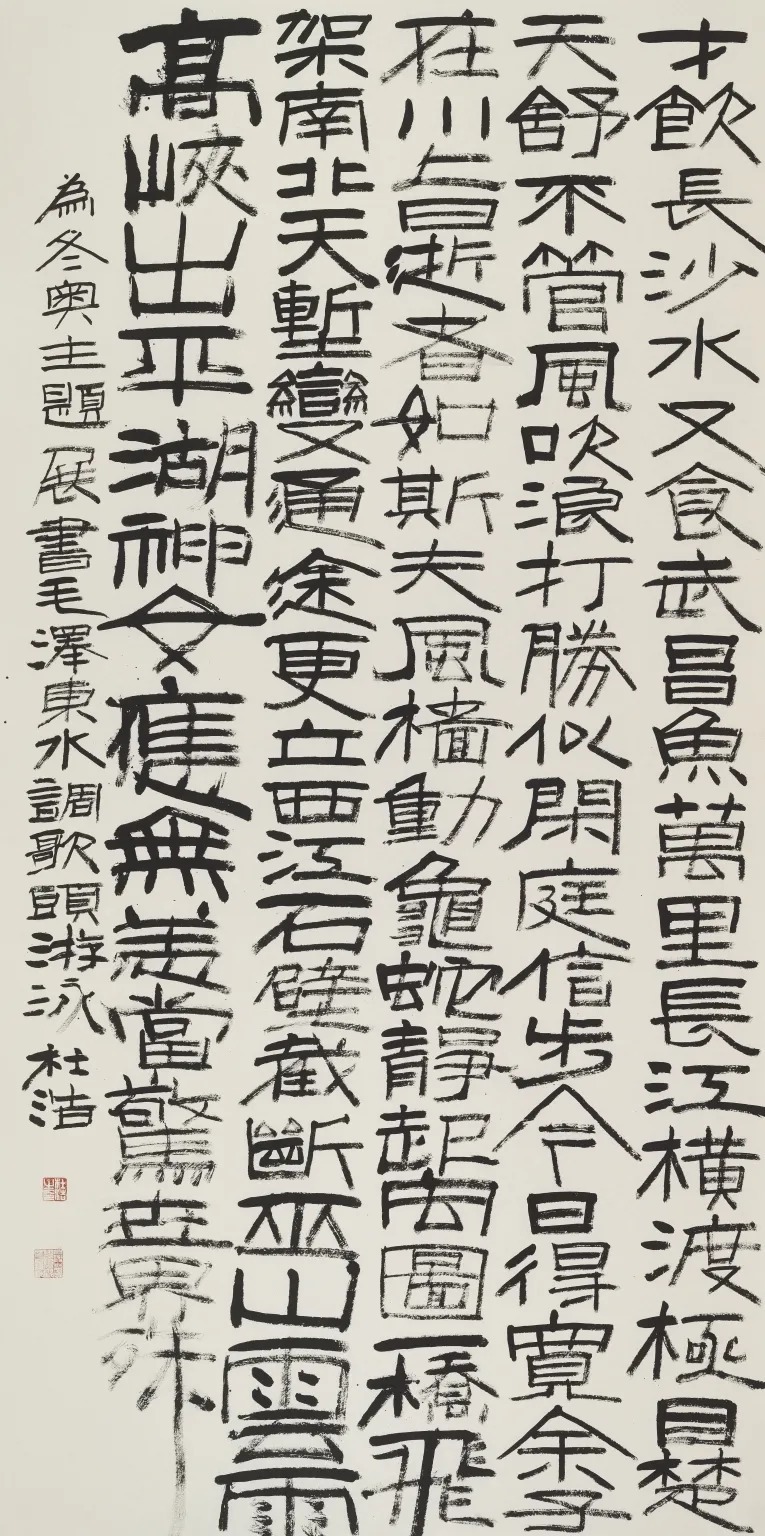 才飲長沙水又食武昌魚萬里長江橫渡極目楚
天舒不管風吹浪打勝似閑庭信步今日得寬余子
在川上曰逝者如斯夫風檣動龜蛇靜起宏圖一橋飛
架南北天塹變通途更立西江石壁截斷巫山雲雨
高峽出平湖神女應無恙當驚世界殊
為冬奧主題展書毛澤東水調歌頭游泳杜浩